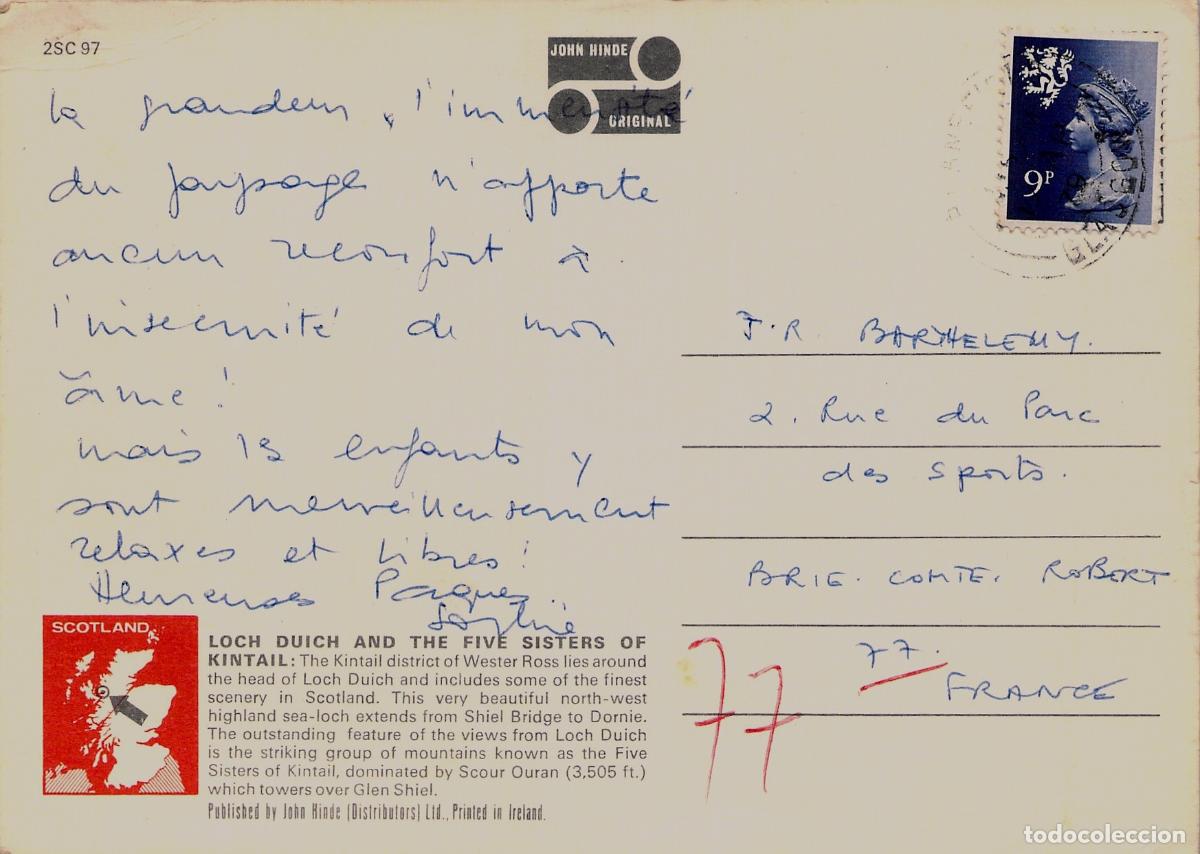 2SC 97
JOHN HINDE
ORIGINAL
la grandeur, l'immensité
du paysage n'apporte
aucun réconfort à
l'insernité de mon
âme!
mais 13 enfants y
sont merveilleusement
relaxes et libres!
Heureuses Paques.
Sophie
9P
J.R BARTHELEMY.
2. Rue du Parc
des Sports.
BRIE. COMTE. ROBERT
77.
FRANCE
77
SCOTLAND
LOCH DUICH AND THE FIVE SISTERS OF
KINTAIL: The Kintail district of Wester Ross lies around
the head of Loch Duich and includes some of the finest
scenery in Scotland. This very beautiful north-west
highland sea-loch extends from Shiel Bridge to Dornie.
The outstanding feature of the views from Loch Duich
is the striking group of mountains known as the Five
Sisters of Kintail, dominated by Scour Ouran (3,505 ft.)
which towers over Glen Shiel.
Published by John Hinde (Distributors) Ltd., Printed in Ireland.
todocoleccion